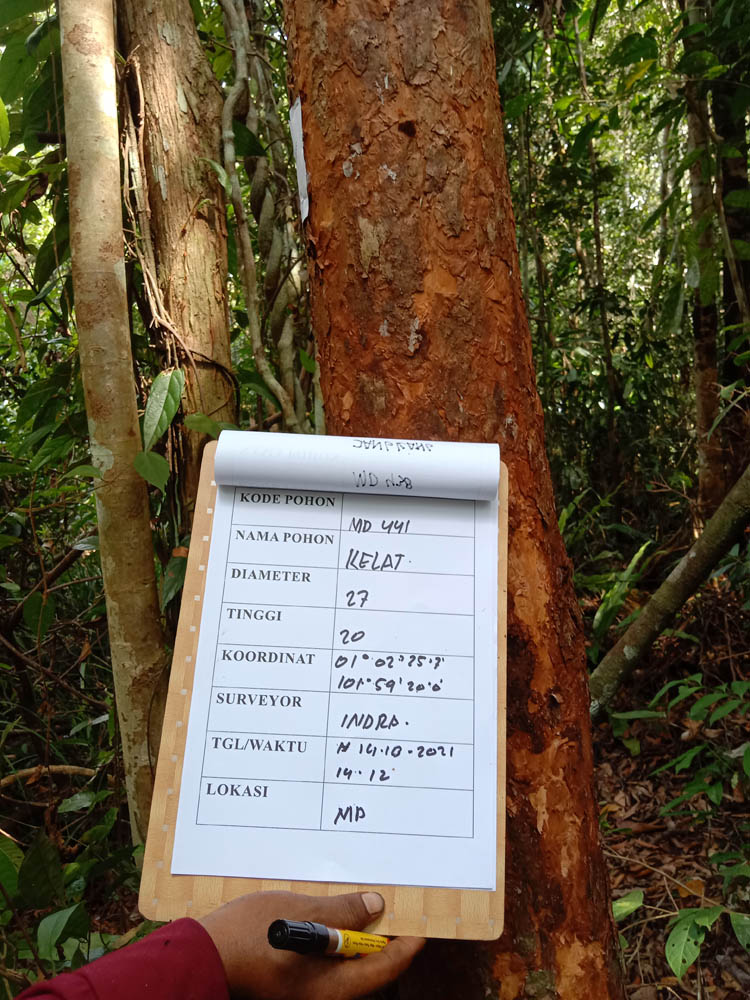 KODE POHON MD 441
NAMA POHON KELAT.
DIAMETER 27
TINGGI 20
KOORDINAT 01° 02' 25.7'
101° 59' 20.0'
SURVEYOR INDRA.
TGL/WAKTU 14.10.2021
14.12
LOKASI MD